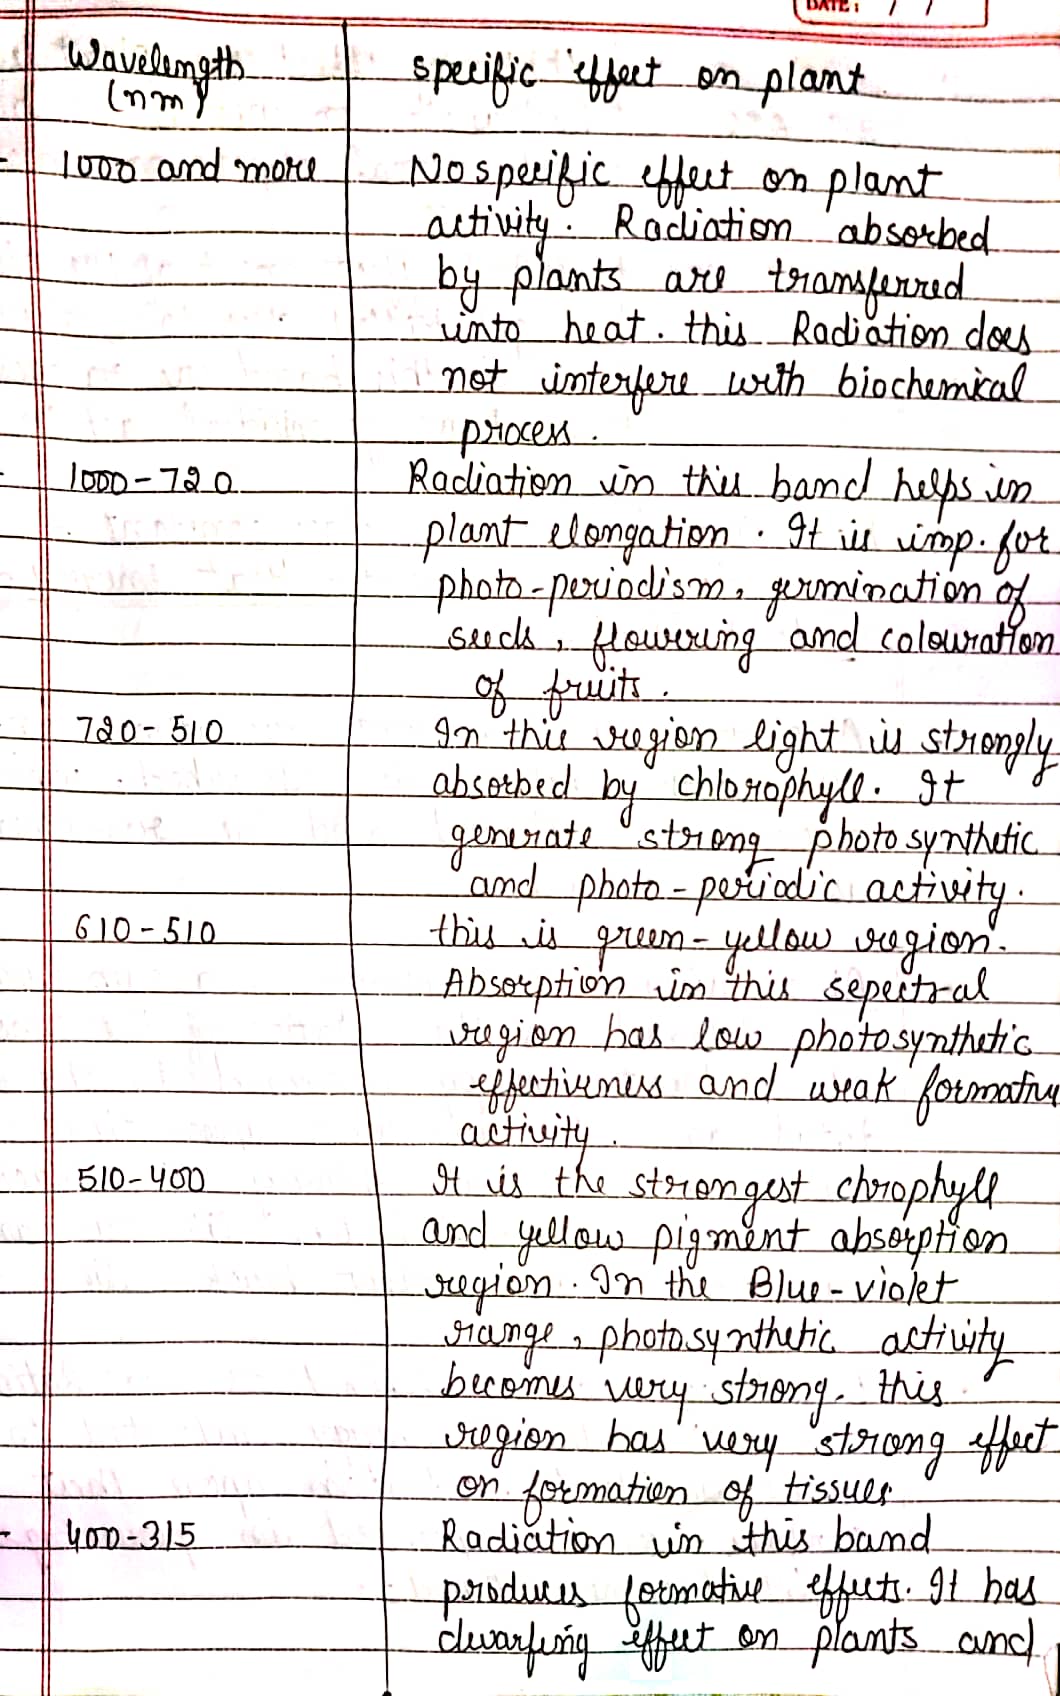 DATE: / /
Wavelength specific effect on plant
(nm)
1000 and more No specific effect on plant
activity. Radiation absorbed
by plants are transferred
into heat. this Radiation does
not interfere with biochemical
process.
1000-720 Radiation in this band helps in
plant elongation. It is imp. for
photo-periodism, germination of
seeds, flowering and colouration
of fruits.
720-510 In this region light is strongly
absorbed by chlorophyll. It
generate strong photosynthetic
and photo-periodic activity.
610-510 this is green-yellow region.
Absorption in this sepectral
region has low photosynthetic
effectiveness and weak formative
activity.
510-400 It is the strongest chrophyll
and yellow pigment absorption
region. In the Blue-violet
range, photosynthetic activity
becomes very strong. this
region has very strong effect
on formation of tissues
400-315 Radiation in this band
produces formative effects. It has
dwarfing effect on plants and